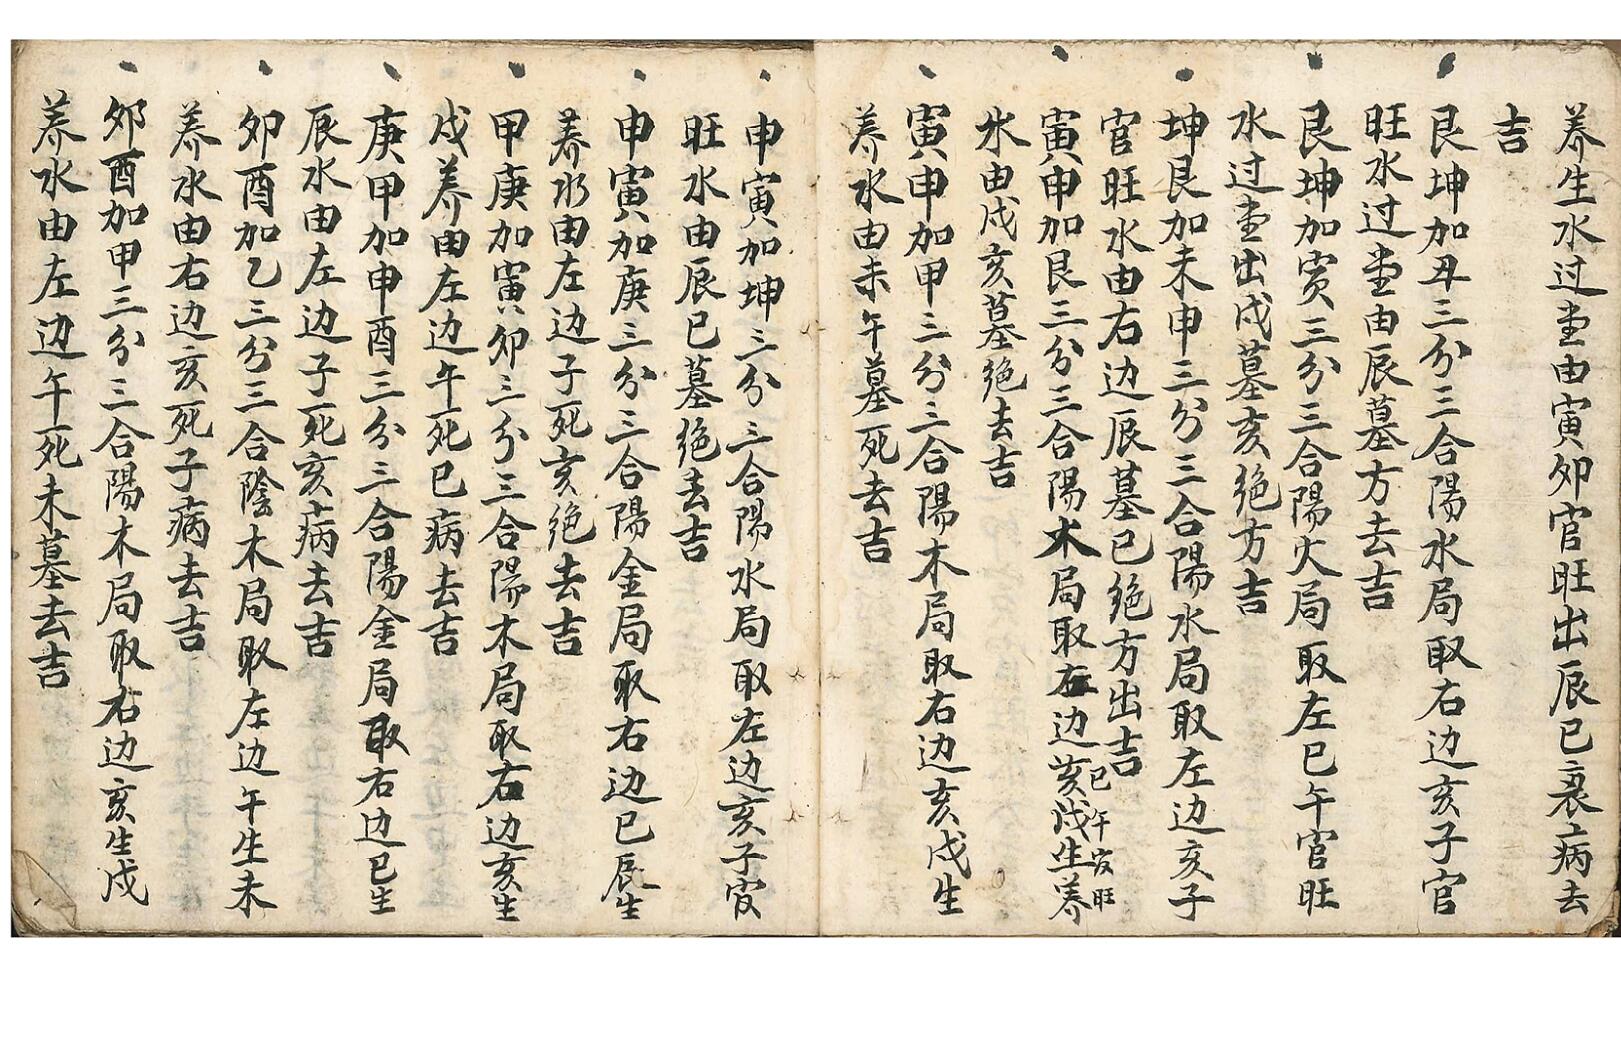 养生水过堂由寅夘官旺出辰巳衰病去
吉
艮坤加丑三分三合陽水局取右边亥子官
旺水过堂由辰墓方去吉
艮坤加寅三分三合陽火局取左巳午官旺
水过堂出戌墓亥绝方吉
坤艮加未申三分三合陽水局取左边亥子
官旺水由右边辰墓巳绝方出吉
巳午官旺
寅申加艮三分三合陽木局取右边亥戌生养
水由戌亥墓绝去吉
寅申加甲三分三合陽木局取右边亥戌生
养水由未午墓死去吉
申寅加坤三分三合陽水局取左边亥子官
旺水由辰巳墓绝去吉
申寅加庚三分三合陽金局取右边巳辰生
养水由左边子死亥绝去吉
甲庚加寅夘三分三合陽木局取右边亥生
戌养由左边午死巳病去吉
庚甲加申酉三分三合陽金局取右边巳生
辰水由左边子死亥病去吉
夘酉加乙三分三合陰木局取左边午生未
养水由右边亥死子病去吉
夘酉加甲三分三合陽木局取右边亥生戌
养水由左边午死未墓去吉